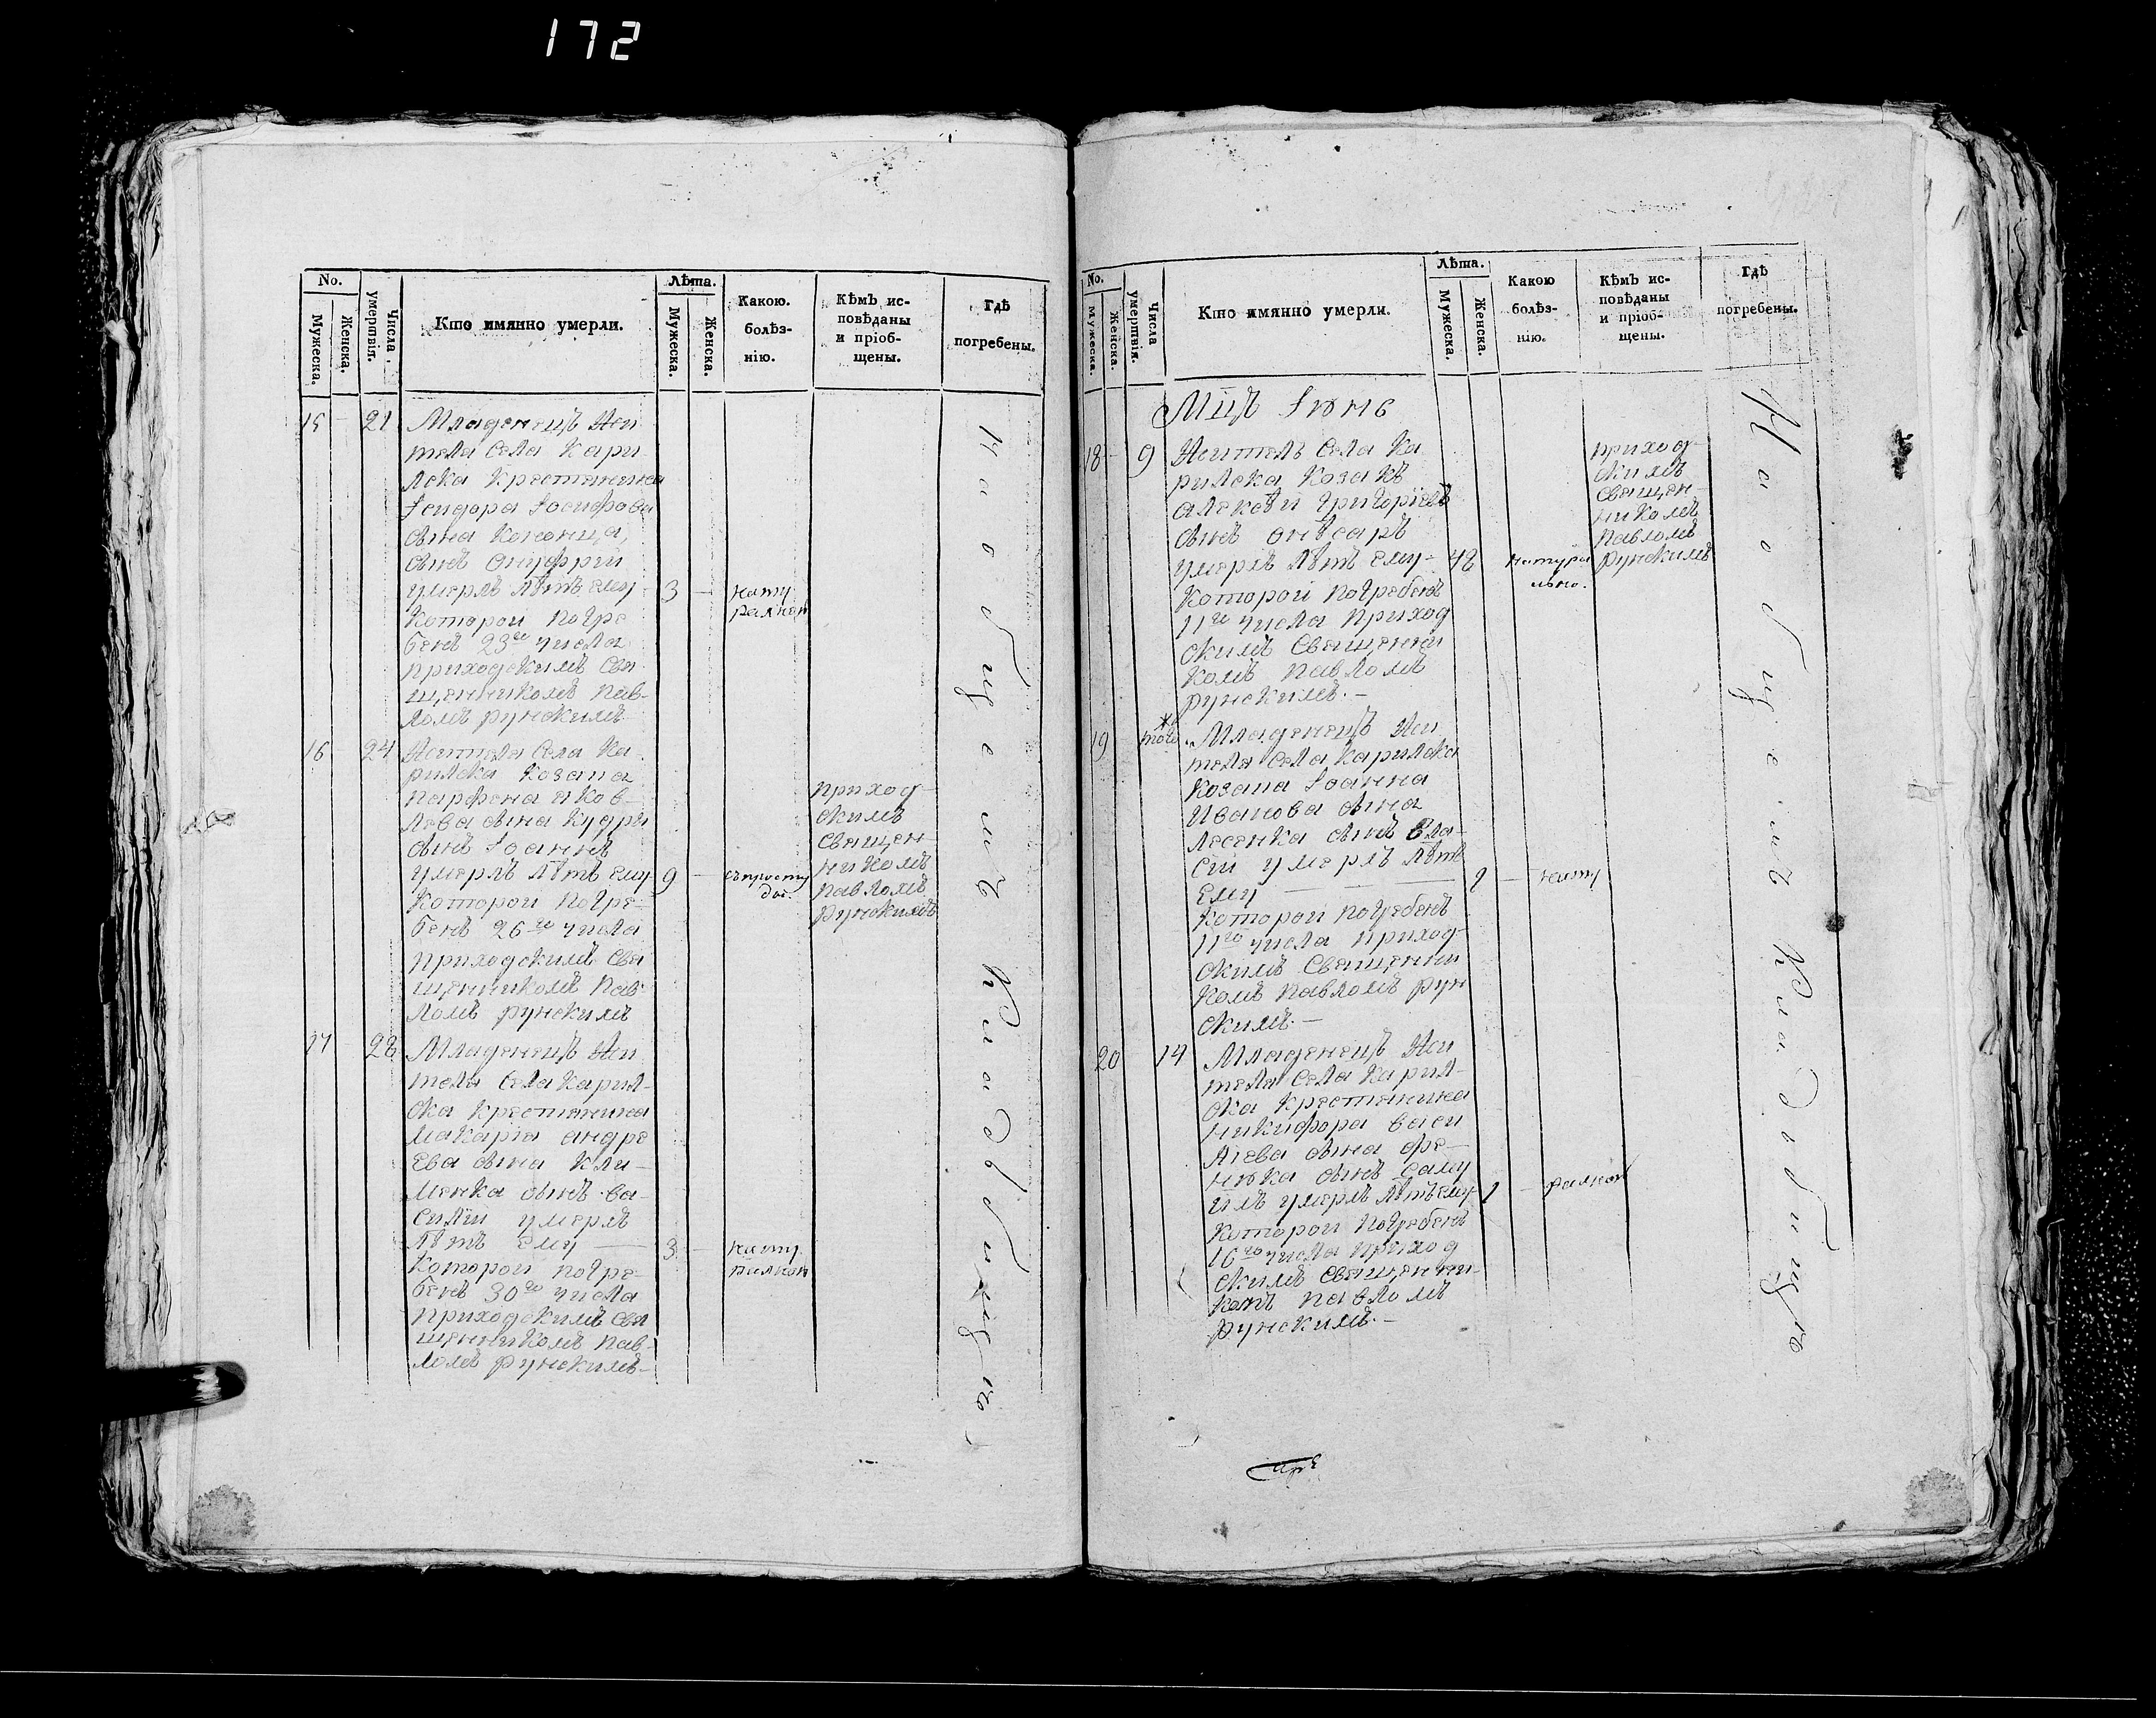 172
No.
Мужеска.
Женска.
Числа умертвія.
Кто имянно умерли.
Лѣта.
Мужеска.
Женска.
Какою. болѣз- нію.
Кѣмъ ис- повѣданы и пріоб- щены.
Гдѣ погребены.
15 - 21 Младенецъ Жи
теля Села Кари
лска Крестянина
Iсидора Iосифова
сына Кононца,
сынъ Онуфрій
умерлъ лѣтъ ему 3 — нату
которои погре ралной
бенъ 23го числа
приходскимъ свя
щенникомъ Пав-
ломъ Рунскимъ
16 - 24 Жителя Села Ка
рилска Козака
Парфена Яков
лева сына Кудри
сынъ Iоаннъ
умерлъ лѣтъ ему 9 — съ просту
которои погре- ды.
бенъ 26го числа
приходскимъ свя
щенникомъ Пав
ломъ Рунскимъ
приход
скимъ
священ
никомъ
Павломъ
Рунскимъ
17 - 28 Младенецъ Жи
теля Села Карил-
ска Крестянина
Макарія Андре
ева сына Кли-
менка сынъ Ва-
силій умерлъ
лѣтъ ему — 3 — нату
которои погре- ралной
бенъ 30го числа
приходскимъ свя
щенникомъ Пав-
ломъ Рунскимъ-
на общемъ кладбищѣ
No.
Мужеска.
Женска.
Числа умертвія.
Кто имянно умерли.
Лѣта.
Мужеска.
Женска.
Какою болѣз- нію.
Кѣмъ ис- повѣданы и пріоб- щены.
Гдѣ погребены.
Мцъ Iюнь
18 - 9 Житель Села Ка
рилска Козакъ
Алексѣй Григоріевъ
сынъ
умерлъ лѣтъ ему- 48 натура
которои погребенъ льно.
11го числа приход
скимъ священни
комъ Павломъ
Рунскимъ.-
приход-
скимъ
священ-
никомъ
Павломъ
Рунскимъ
19 - того Младенецъ Жи
теля Села Карилска
Козака Iоанна
Иванова сына
Лесенка сынъ Вла-
сій умерлъ лѣтъ
ему — 1 — нату
которои погребенъ
11го числа приход-
скимъ священни
комъ Павломъ Рун
скимъ.-
20 14 Младенецъ Жи
теля Села Карил-
ска Крестянина
Никифора Васи
лева сына
сынъ Саму
илъ умерлъ лѣтъ ему 1 — ралной
которои погребенъ
16го числа приход
скимъ священни-
комъ Павломъ
Рунскимъ.-
На общемъ кладбищѣ